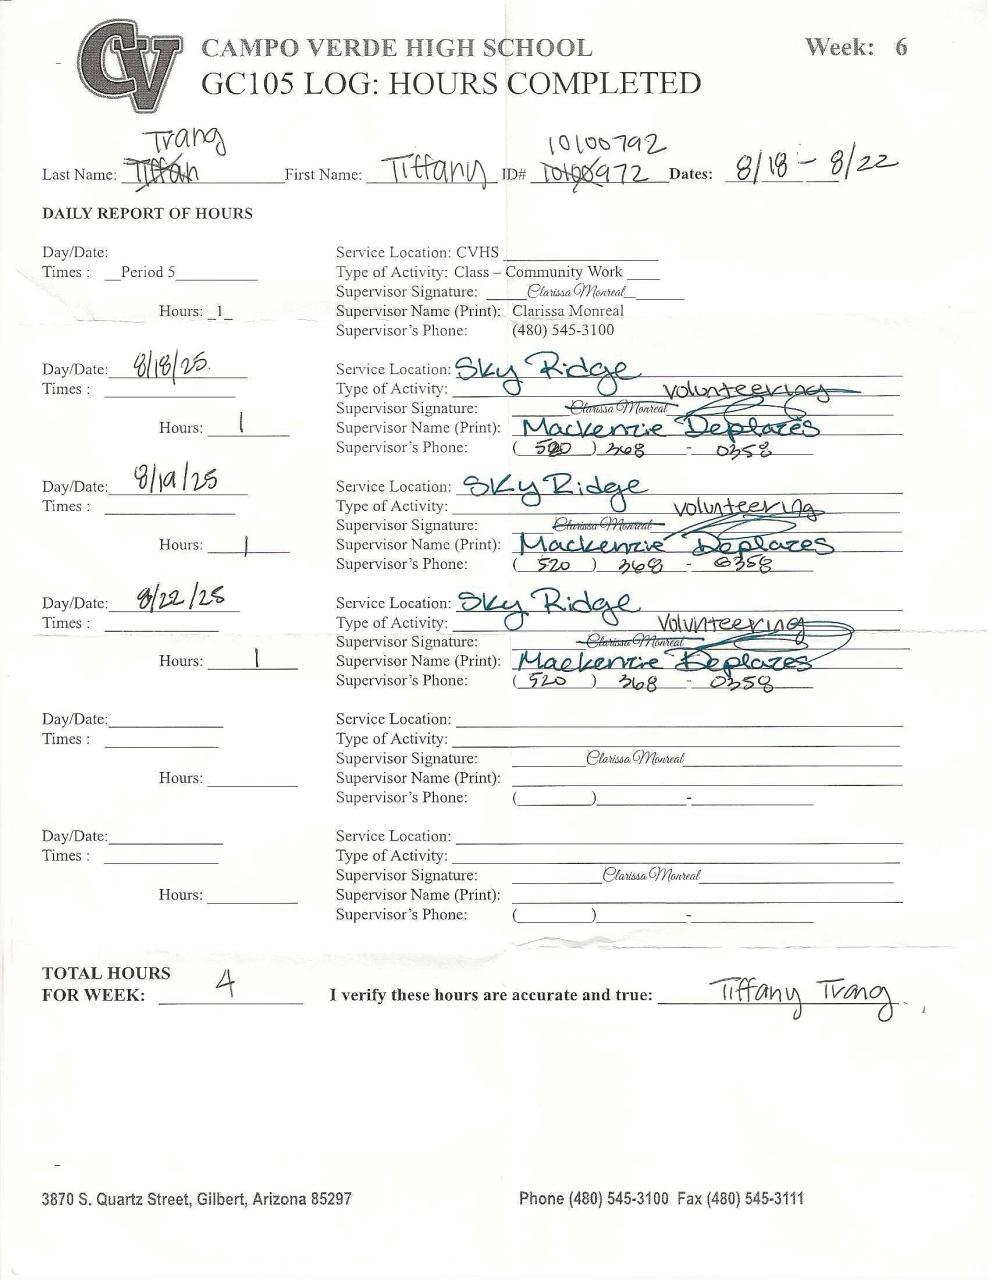 CV
CAMPO VERDE HIGH SCHOOL Week: 6
GC105 LOG: HOURS COMPLETED
Trang 10100792
Last Name: Tiffan First Name: Tiffany ID# 10100972 Dates: 8/18 - 8/22
DAILY REPORT OF HOURS
Day/Date: Service Location: CVHS
Times : Period 5 Type of Activity: Class – Community Work
Supervisor Signature: Clarissa Monreal
Hours: 1 Supervisor Name (Print): Clarissa Monreal
Supervisor's Phone: (480) 545-3100
Day/Date: 8/18/25 Service Location: Sky Ridge
Times : Type of Activity: volunteering
Supervisor Signature: Clarissa Monreal
Hours: 1 Supervisor Name (Print): Mackenzie Deplazes
Supervisor's Phone: (520) 368 - 0358
Day/Date: 8/19/25 Service Location: Sky Ridge
Times : Type of Activity: volunteering
Supervisor Signature: Clarissa Monreal
Hours: 1 Supervisor Name (Print): Mackenzie Deplazes
Supervisor's Phone: (520) 368 - 0358
Day/Date: 8/22/25 Service Location: Sky Ridge
Times : Type of Activity: Volunteering
Supervisor Signature: Clarissa Monreal
Hours: 1 Supervisor Name (Print): Mackenzie Deplazes
Supervisor's Phone: (520) 368 - 0358
Day/Date: Service Location:
Times : Type of Activity:
Supervisor Signature: Clarissa Monreal
Hours: Supervisor Name (Print):
Supervisor's Phone: ( ) -
Day/Date: Service Location:
Times : Type of Activity:
Supervisor Signature: Clarissa Monreal
Hours: Supervisor Name (Print):
Supervisor's Phone: ( ) -
TOTAL HOURS
FOR WEEK: 4 I verify these hours are accurate and true: Tiffany Trang
3870 S. Quartz Street, Gilbert, Arizona 85297 Phone (480) 545-3100 Fax (480) 545-3111